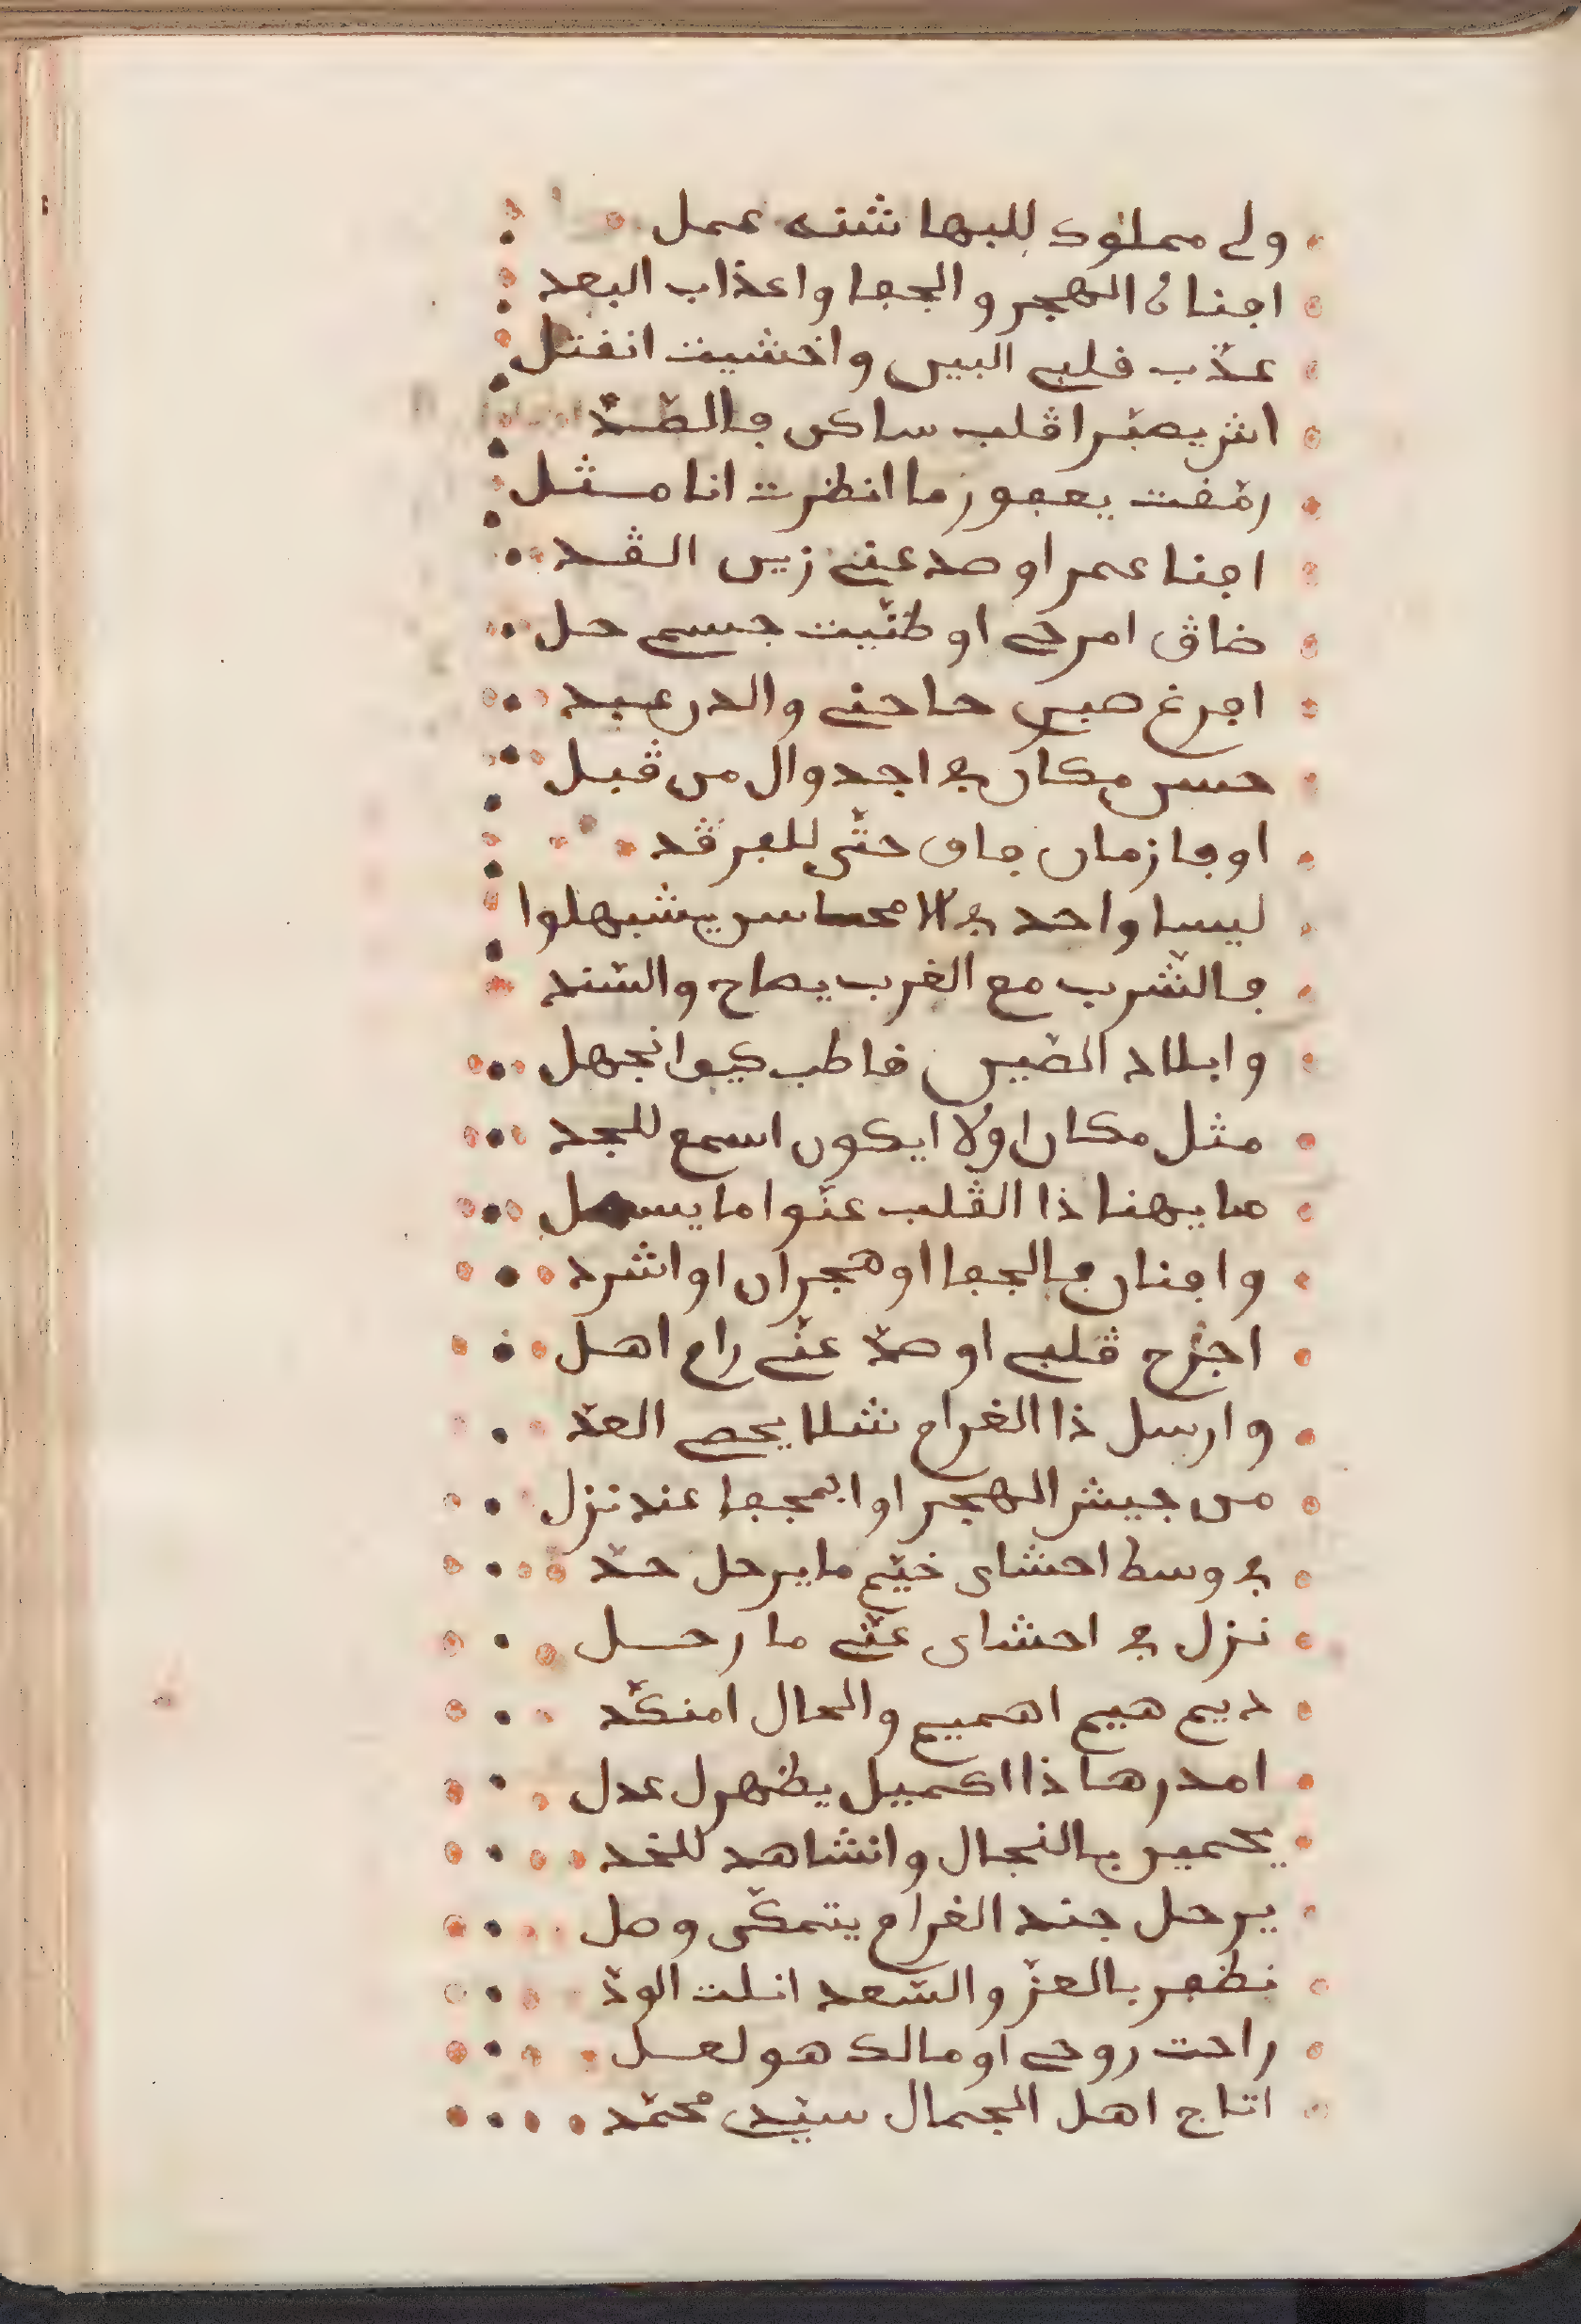 ولى مملوك للبها شنه عمل
افنان الهجر والجفا واعذاب البعد
عذّب قلبي البين واخشيت انقتل
اش يصبّر اقلب ساكن فالصّدّ
رمقت يعفور ما انظرت انا مثل
افنا عمر او صد عني زين القد
ضاق امرى او ظنّيت جسمي حل
افرغ صبرى حاحنى والدر عبد
حسن مكان في اجدوال من قبل
او فا زمان فاق حتى للفرقد
ليسا واحد في لا محاسن يشبهلوا
فالشّرب مع الغرب يصاح والسّند
وابلاد الصّين قاطب كيوانجهل
مثل مكان اولا ايكون اسمع للجد
ما يهنا ذا القلب عنّوا ما يسهل
وافنان فالجفا او هجران او اشرد
اجرح قلبي او صدّ عنّى رام اهل
وارسل ذا الغرام شلا يحصى العدّ
من جيش الهجر او الجفا عند نزل
في وسط احشاى خيّم ما يرحل حدّ
نزل في احشاى عنّى ما رحل
ديم هيم اهميم والحال امنكّد
امدرها ذا اكميل يظهرل عدل
يحمين بالنجال وانشاهد للخد
يرحل جند الغرام يتمكّن وصل
نظفر بالعزّ والسّعد انلت الودّ
راحت روحى او مالك هو لعل
اتاج اهل الجمال سيّدى محمّد